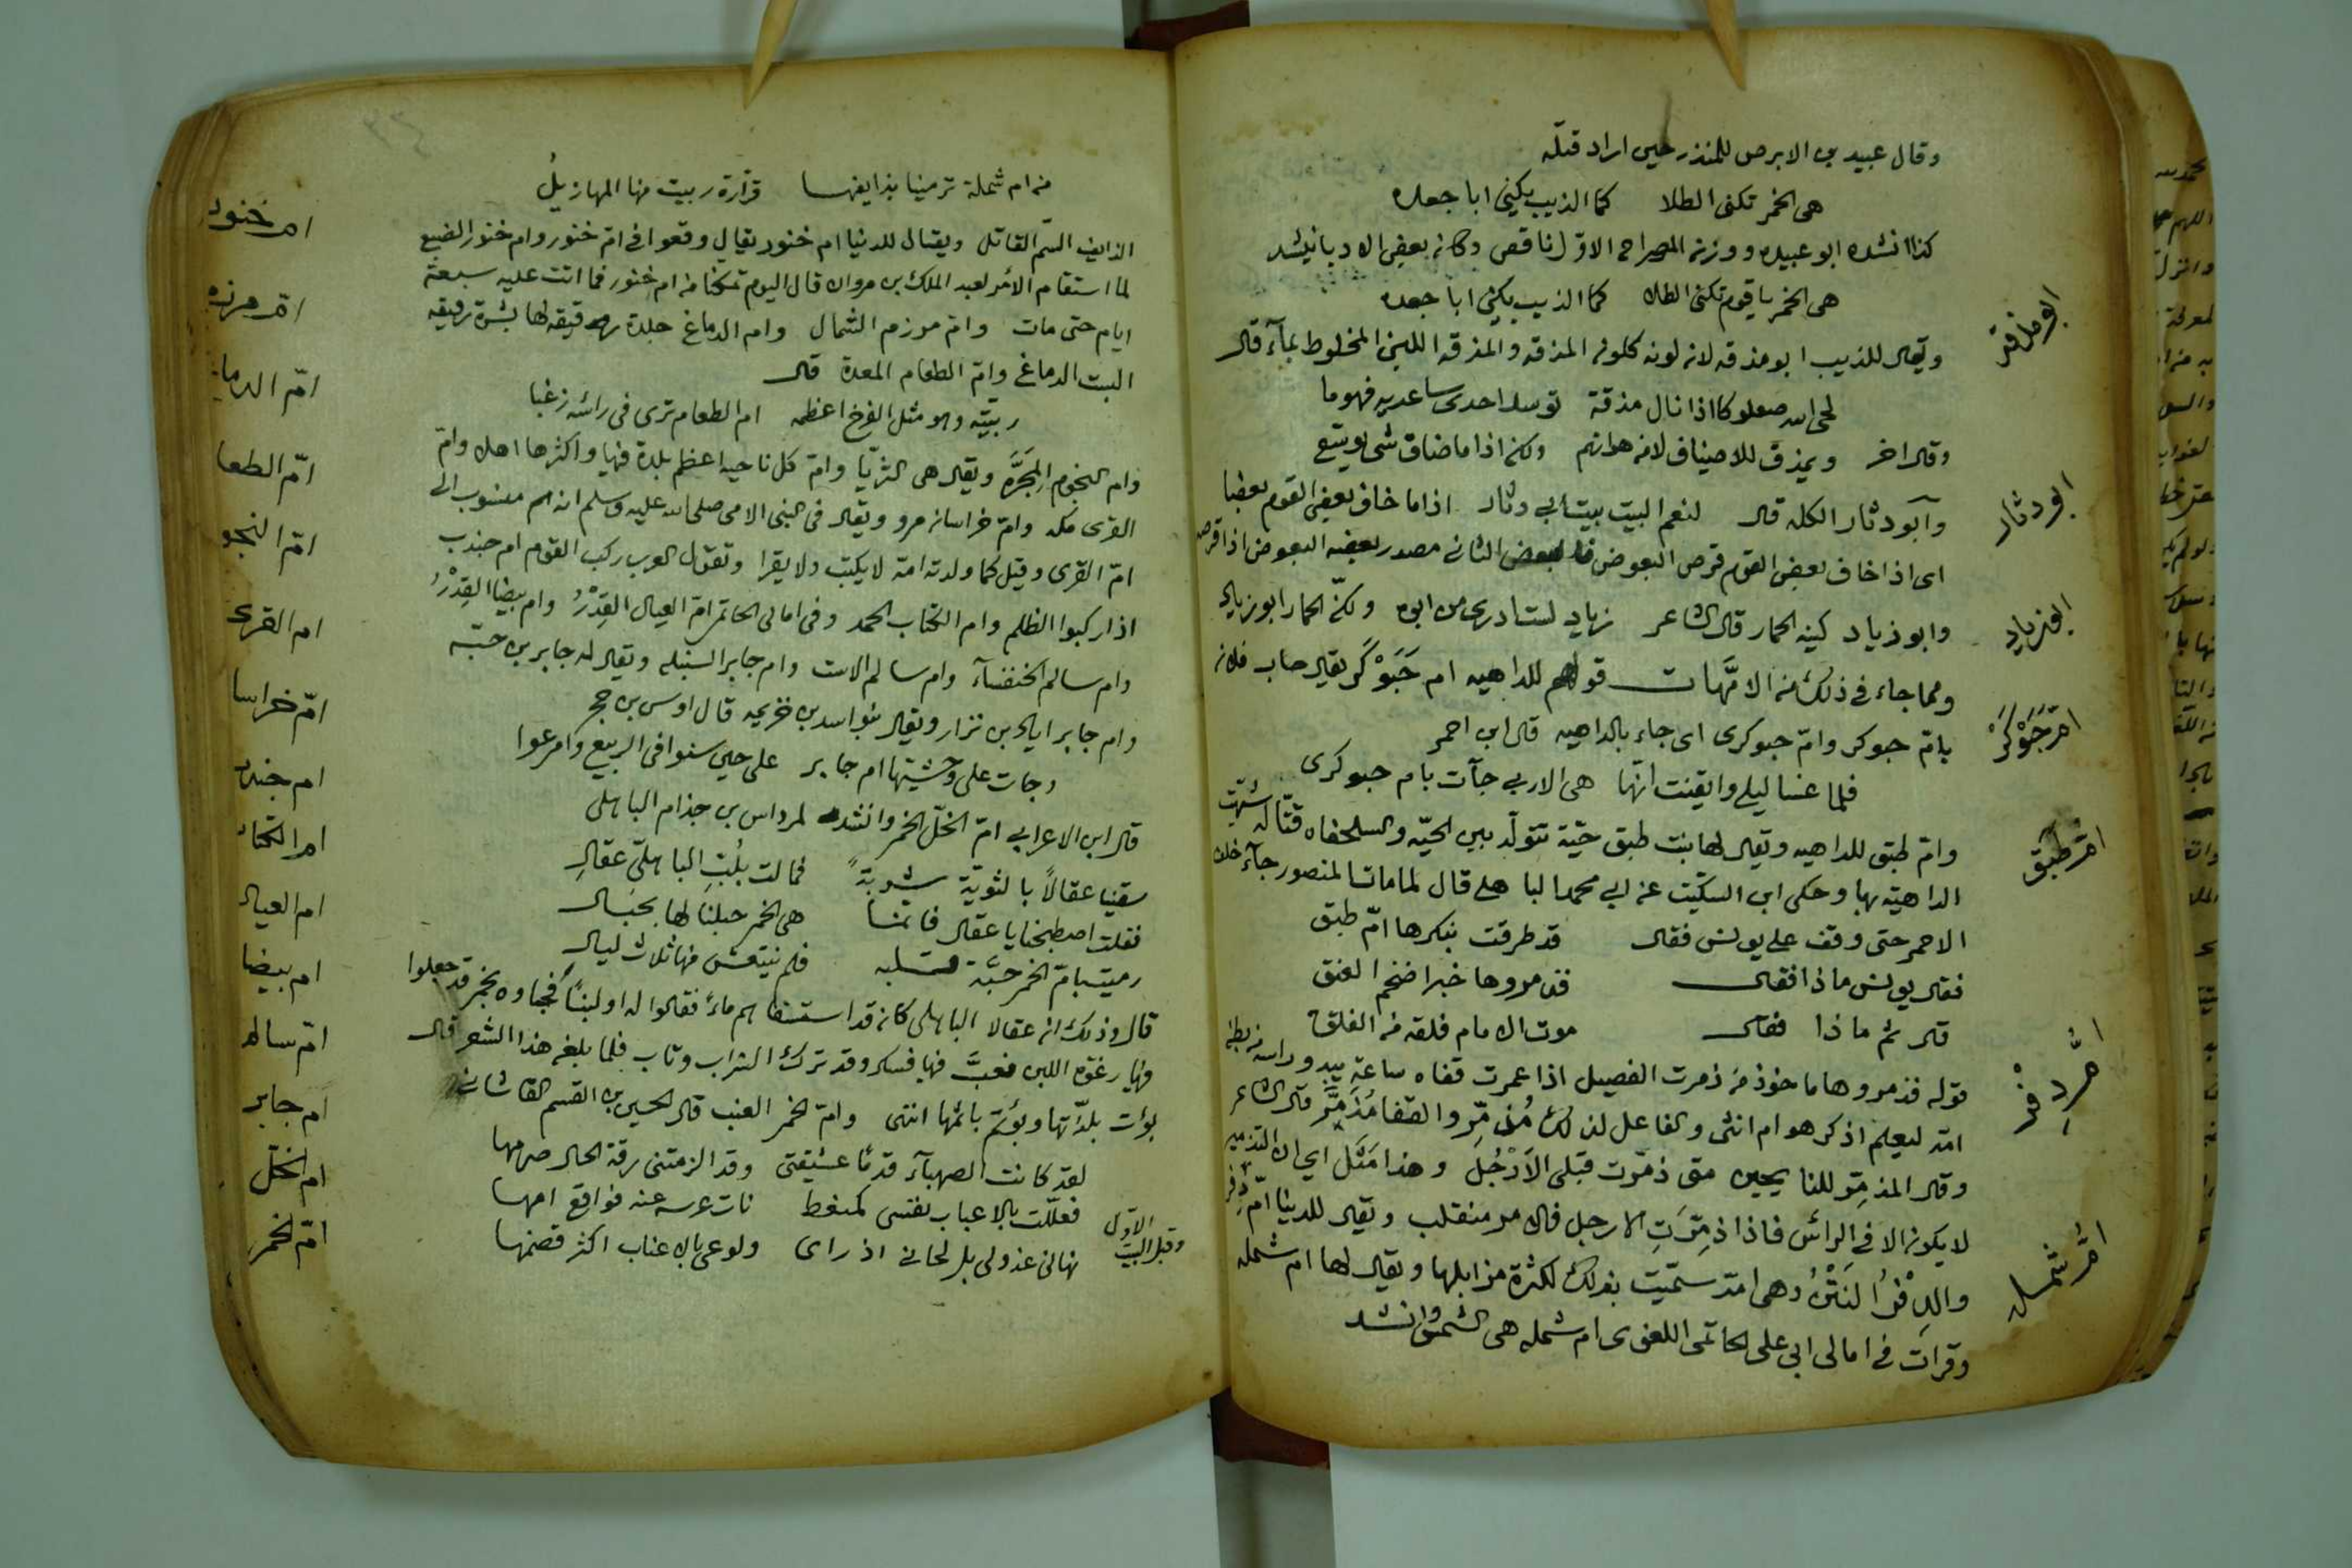 وقال عبيد بن الابرص للمنذر حين اراد قتله
هى الخمر تكنى الطلا كما الذيب يكنى ابا جعده
كذا انشده ابو عبيده ووزن المصراع الاوّل ناقص وكان بعض الادبا ينشد
هى الخمر يا قوم تكنى الطلا كما الذيب يكنى ابا جعده
ابو مذقه
ويقال للذيب ابو مذقه لان لونه كلون المذقه والمذقه اللبن المخلوط بمآء قال
لحى الله صعلوكا اذا نال مذقة توسد احدى ساعديه فهوما
وقال اخر ويمذق للاضياف لا من هوانهم ولكن اذا ما ضاق شى يوسع
ابو دثار
وآبو دثار الكله قال لنعم البيت بيت ابى دثار اذا ما خاف بعض القوم بعضا
اى اذا خاف بعض القوم قرص البعوض فا لبعض الثانى مصدر بعضه البعوض اذا قرصه
ابو زياد
وابو زياد كنية الحمار قال الشاعر زياد لست ادرى من ابوه ولكنّ الحمار ابو زياد
ومما جاء فى ذلك من الامّهات قولهم للداهيه ام حَبَوْكَر يقال جاء فلان
امّ حَبَوْكَرْ
بامّ حبوكر وامّ حبوكرى اى جاء بالداهيه قال ابن احمر
فلما غسا ليلى وايقنت انّها هى الاربى جآت بام حبوكرى
امّ طَبَق
وامّ طبق للداهيه ويقال لها بنت طبق حيّة تتولّد بين الحيّه والسلحفاه قتّاله شبّهت
الداهيّه بها وحكى ابن السكيّت عن ابى محمد الباهلى قال لما مات المنصور جآء خلف
الاحمر حتى وقف على يونس فقال قد طرقت ببكرها امّ طبق
فقال يونس ماذا فقال فذمروها خبرا ضخم العنق
قال ثم ماذا فقال موت الامام فلقه من الفلق
قوله فذمروها ماخوذ من ذمرت الفصيل اذا غمرت قفاه ساعة يبدو راسه من بطن
امّ دِفْر
امّه ليعلم اذكر هو ام انثى والفاعل لذلك مُذمِّر والقفا مُذَمَّر قال الشاعر
وقال المذمِّر للناتجين متى ذمّرت قبلى الاَرْجُلُ وهذا مَثَل اى ان التذمير
لا يكون الا فى الراس فاذا ذمِّرَتِ الارجل فالامر منقلب ويقال للدنيا امّ دِفر
امّ شمله
والدِفْرُ النَتْنُ وهى امّة سمّيت بذلك لكثرة مزابلها ويقال لها ام شمله
وقرات فى امالى ابى على الحاتمى اللغوى ام شمله هى الشمس وانشد
من ام شملة ترمينا بذايفها قرّارة ربيت منها المهازيلُ
ام خنور
الذايف السّم القاتل ويقال للدنيا ام خنور يقال وقعوا فى امّ خنور وام خنور الضبع
لما استقام الامر لعبد الملك بن مروان قال اليوم تمكنا من ام خنور فما اتت عليه سبعة
ام مرزم
ايام حتى مات وامّ مرزم الشمال وام الدماغ جلدة رقيقه لها بشرة رقيقه
امّ الدماغ
البت الدماغ وامّ الطعام المعدة قال
ربيّته وهو مثل الفرخ اعظمه ام الطعام ترى فى راسه زغبا
امّ الطعا
وام النجوم المجَرَّه ويقال هى الثريّا وامّ كل ناحيه اعظم بلدة فيها واكثرها اهلا وامّ
امّ النجو
القرى مكه وامّ خراسان مرو ويقال فى النبى الامى صلى الله عليه وسلم انه منسوب الى
امّ القرى وقيل كما ولدته امّه لا يكتب ولا يقرا وتقول العرب ركب القوم ام جندب
ام القرى
اذا ركبوا الظلم وام الكتاب الحمد وفى امالى الحاتمى امّ العيال القِدْرُ وام بيضا القِدْرُ
امّ خراسا
وام سالم الخنفسآء وام سالم الاست وام جابر السنبله ويقال له جابر بن حبّه
وام جابر اياد بن نزار ويقال بنو اسد بن خزيمه قال اوس بن حجر
ام جندب
وجات على وحشيتها ام جابر على حين سنوا فى الربيع وامرعوا
ام الكتاب
قال ابن الاعرابى امّ الخلّ الخمر وانشد لمرداس بن جذام الباهلى
سقينا عقالاً بالثويّة شربةً فمالت بلُبِّ الباهلىّ عقالِ
ام العيال
فقلت اصطبخها يا عقال فانما هى الخمر خيلنا لها بخيال
رميت بامّ الخمر حبّة قلبه فلم ينتعش منها ثلاث ليال
ام بيضا
قال وذلك ان عقالا الباهلى كان قد استسقاهم ماءً فقالوا له او لبنًا فجاوه بخمر قد جعلوا
امّ سالم
فيها رغوة اللبن فعبَّ فيها فسكر وقد ترك الشراب وتاب فلما بلغه هذا الشعر قال
بؤت بلذّتها ويؤتم باثمها انتى وامّ الخمر العنب قال الحسين بن القسم القاشانى
ام جابر
لقد كانت الصهبآء قدمًا عشيقتى وقد الزمتنى رقة الحال صرمها
ام الخلّ
فعلّلت بالاعناب نفسى كمغط نات عرسه عنه فواقع امها
وقبل البيت الاوّل
نهانى عذولى بل لحانى اذ راى ولوعى بالاعناب اكثر قضمها
امّ الخمر